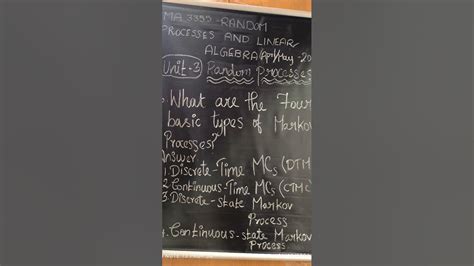 MA 3355-RANDOM
PROCESSES AND LINEAR
ALGEBRA (Apr/May-20
Unit-3 Random processes
What are the Four
basic types of Markov
Processes?
Answer
1. Discrete-Time MCs (DTM
2. Continuous-Time MCs (CTMC
3. Discrete-state Markov
Process
4. Continuous-state Markov
Process